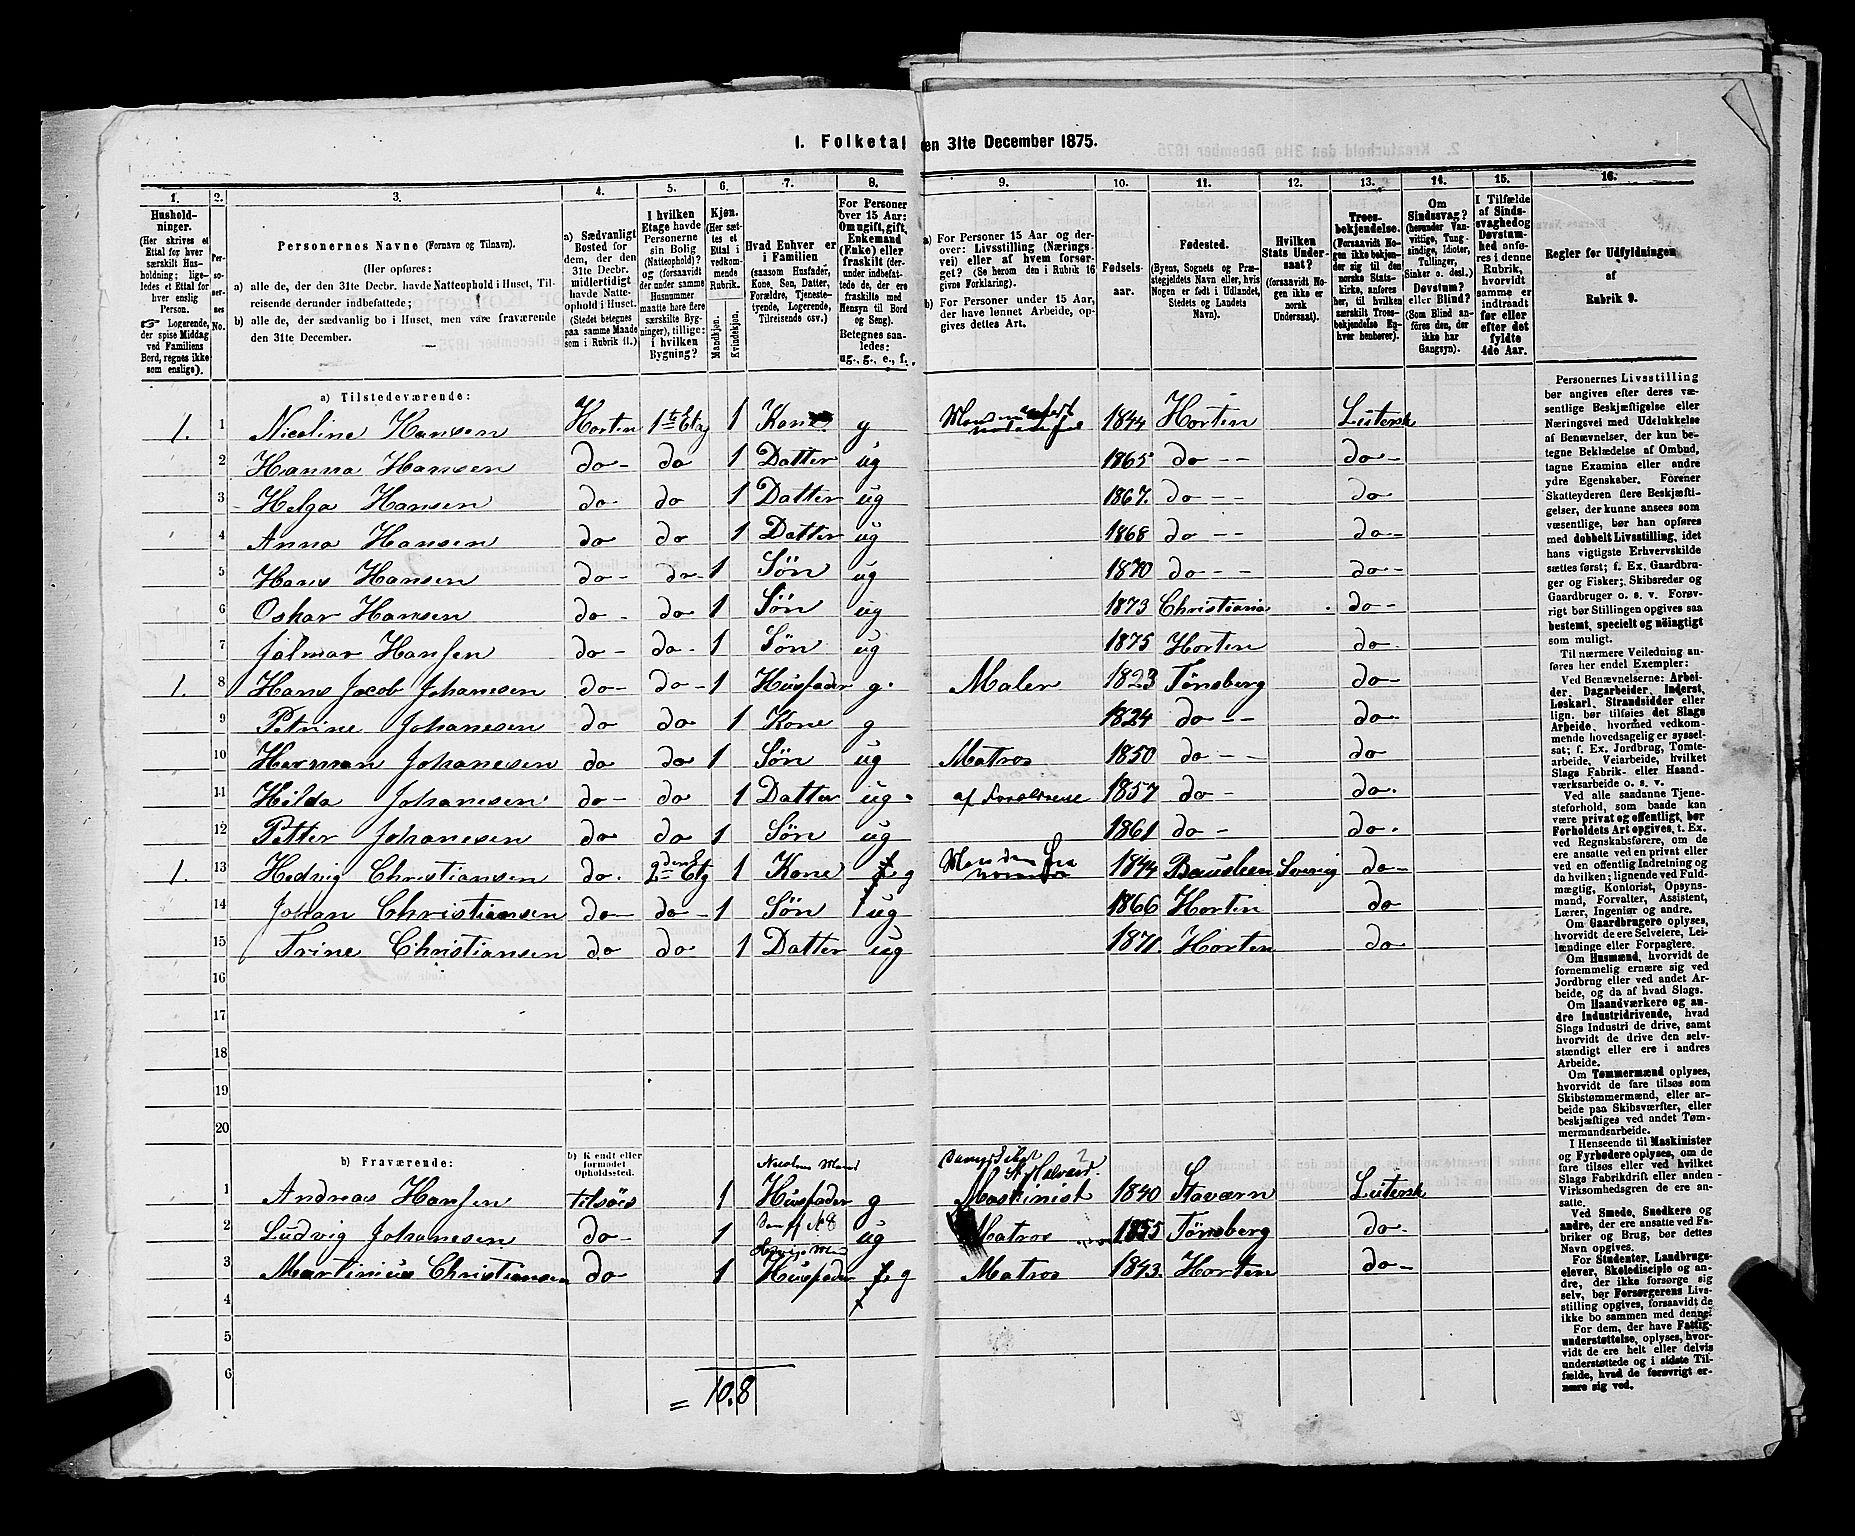 1. Folketal den 31te December 1875.
1. 2. 3. 4. 5. 6. 7. 8. 9. 10. 11. 12. 13. 14. 15. 16.
Hushold-
ninger.
(Her skrives et
Ettal for hver
særskilt Hus-
holdning; lige-
ledes et Ettal for
hver enslig
Person.
☞ Logerende,
der spise Middag
ved Familiens
Bord, regnes ikke
som enslige).
Per-
so-
ner-
nes
No.
Personernes Navne (Fornavn og Tilnavn).
(Her opføres:
a) alle de, der den 31te Decbr. havde Natteophold i Huset, Til-
reisende derunder indbefattede;
b) alle de, der sædvanlig bo i Huset, men vare fraværende
den 31te December.
a) Sædvanligt
Bosted for
dem, der den
31te Decbr.
midlertidigt
havde Natte-
ophold i Huset.
(Stedet betegnes
paa samme Maade
som i Rubrik 11.)
I hvilken
Etage havde
Personerne
sin Bolig
(Natteophold)?
og (forsaavidt
der under samme
Husnummer
maatte høre flere
særskilte Byg-
ninger), tillige:
i hvilken
Bygning?
Kjøn.
(Her sæt-
tes et
Ettal i
vedkom-
mende
Rubrik.)
Mandkjøn.
Kvindekjøn.
Hvad Enhver er
i Familien
(saasom Husfader,
Kone, Søn, Datter,
Forældre, Tjeneste-
tyende, Logerende,
Tilreisende osv.)
For Personer
over 15 Aar:
Om ugift, gift,
Enkemand
(Enke) eller
fraskilt (der-
under indbefat-
tede de, der ere
fraskilte med
Hensyn til Bord
og Seng).
Betegnes saa-
ledes:
ug., g., e., f.
a) For Personer 15 Aar og der-
over: Livsstilling (Nærings-
vei) eller af hvem forsør-
get? (Se herom den i Rubrik 16
givne Forklaring).
b) For Personer under 15 Aar,
der have lønnet Arbeide, op-
gives dettes Art.
Fødsels-
aar.
Fødested.
(Byens, Sognets og Præ-
stegjeldets Navn eller, hvis
Nogen er født i Udlandet,
Stedets og Landets
Navn).
Hvilken
Stats Under-
saat?
(forsaavidt No-
gen ikke er
norsk
Undersaat).
Troes-
bekjendelse.
(Forsaavidt No-
gen ikke bekjen-
der sig til den
norske Stats-
kirke, anføres
her, til hvilken
særskilt Troes-
bekjendelse En-
hver henhører).
Om
Sindssvag?
(herunder Van-
vittige, Tung-
sindige, Idioter,
Tullinger,
Sinker o. desl.)
Døvstum?
eller Blind?
(Som Blind an-
føres den, der
ikke har
Gangsyn).
I Tilfælde
af Sinds-
svaghed og
Døvstum-
hed anfø-
res i denne
Rubrik,
hvorvidt
samme er
indtraadt
før eller
efter det
fyldte
4de Aar.
Regler for Udfyldningen
af
Rubrik 9.
a) Tilstedeværende:
1. 1 Nicoline Hansen Horten 1ste Etg 1 Kone g 1844 Horten Lutersk
2 Hanna Hansen do - do 1 Datter ug 1865 do - - do -
3 Helga Hansen do - do 1 Datter ug 1867. do - - do
4 Anna Hansen do do 1 Datter ug 1868 do - - do -
5 Hans Hansen do - do - 1 Søn ug 1870 do - - do -
6 Oskar Hansen do - do 1 Søn ug 1873 Christiania do -
7 Jalmar Hansen do - do - 1 Søn ug 1875 Horten do
1. 8 Hans Jacob Johanesen do - do - 1 Husfader g. Maler 1823 Tønsberg do
9 Petrine Johanesen do do 1 Kone g 1824 do - - do
10 Herman Johanesen do do 1 Søn ug Matros 1850 do - - do
11 Hilda Johanesen do - do 1 Datter ug af Forældrene 1857 do - do.
12 Petter Johanesen do do 1 Søn ug 1861 do - do.
1. 13 Hedvig Christiansen do. 2den Etg 1 Kone g 1844 Sverig do -
14 Johan Christiansen do - do - 1 Søn ug 1866 Horten do
15 Trine Christiansen do do 1 Datter ug 1871. Horten do
16
17
18
19
20
b) Fraværende: b) Kjendt eller
formodet
Opholdssted.
Nicolines Mand
1 Andreas Hansen tilsøis 1 Husfader g Maskinist 1840 Staværn Lutersk
Søn af N 8
2 Ludvig Johanesen do - 1 ug Matros 1855 Tønsberg do -
Hedvigs Mand
3 Martinius Christiansen do 1 Husfader g Matros 1843. Horten do -
4
5
6
= 10. 8
Personernes Livsstilling
bør angives efter deres væ-
sentlige Beskjæftigelse eller
Næringsvei med Udelukkelse
af Benævnelser, der kun be-
tegne Beklædelse af Ombud,
tagne Examina eller andre
ydre Egenskaber. Forener
Skatteyderen flere Beskjæfti-
gelser, der kunne ansees som
væsentlige, bør han opføres
med dobbelt Livsstilling, idet
hans vigtigste Erhvervskilde
sættes først; f. Ex. Gaardbru-
ger og Fisker; Skibsreder og
Gaardbruger o. s. v. Forøv-
rigt bør Stillingen opgives saa
bestemt, specielt og nøiagtigt
som muligt.
Til nærmere Veiledning an-
føres her endel Exempler:
Ved Benævnelserne: Arbei-
der, Dagarbeider, Inderst,
Løskarl, Strandsidder eller
lign. bør tilføies det Slags
Arbeide, hvormed vedkom-
mende hovedsagelig er syssel-
sat; f. Ex. Jordbrug, Tomte-
arbeide, Veiarbeide, hvilket
Slags Fabrik- eller Haand-
værksarbeide o. s. v.
Ved alle saadanne Tjene-
steforhold, som baade kan
være privat og offentligt, bør
Forholdets Art opgives, t. Ex.
ved Regnskabsførere, om de
ere ansatte ved en privat eller
ved en offentlig Indretning og
da hvilken; lignende ved Fuld-
mægtig, Kontorist, Opsyns-
mand, Forvalter, Assistent,
Lærer, Ingeniør og andre.
Om Gaardbrugere oplyses,
hvorvidt de ere Selveiere, Lei-
lændinge eller Forpagtere.
Om Husmænd, hvorvidt de
fornemmelig ernære sig ved
Jordbrug eller ved andet Ar-
beide, og da af hvad Slags.
Om Haandværkere og an-
dre Industridrivende, hvad
Slags Industri de drive, samt
hvorvidt de drive den selv-
stændigt eller ere i andres
Arbeide.
Om Tømmermænd oplyses,
hvorvidt de fare tilsøs som
Skibstømmermænd, eller ar-
beide paa Skibsværfter, eller
beskjæftiges ved andet Tøm-
mermandsarbeide.
I Henseende til Maskinister
og Fyrbødere oplyses, om de
fare tilsøs eller ved hvilket
Slags Fabrikdrift eller anden
Virksomhedsgren de ere an-
satte.
Ved Smede, Snedkere og
andre, der ere ansatte ved Fa-
briker og Brug, bør dettes
Navn opgives.
For Studenter, Landbrugs-
elever, Skoledisciple og an-
dre, der ikke forsørge sig
selv, bør Forsørgerens Livs-
stilling opgives, forsaavidt de
ikke bo sammen med denne.
For dem, der have Fattig-
understøttelse, oplyses, hvor-
vidt de ere helt eller delvis
understøttede og i sidste Til-
fælde, hvad de forøvrigt er-
nære sig ved.